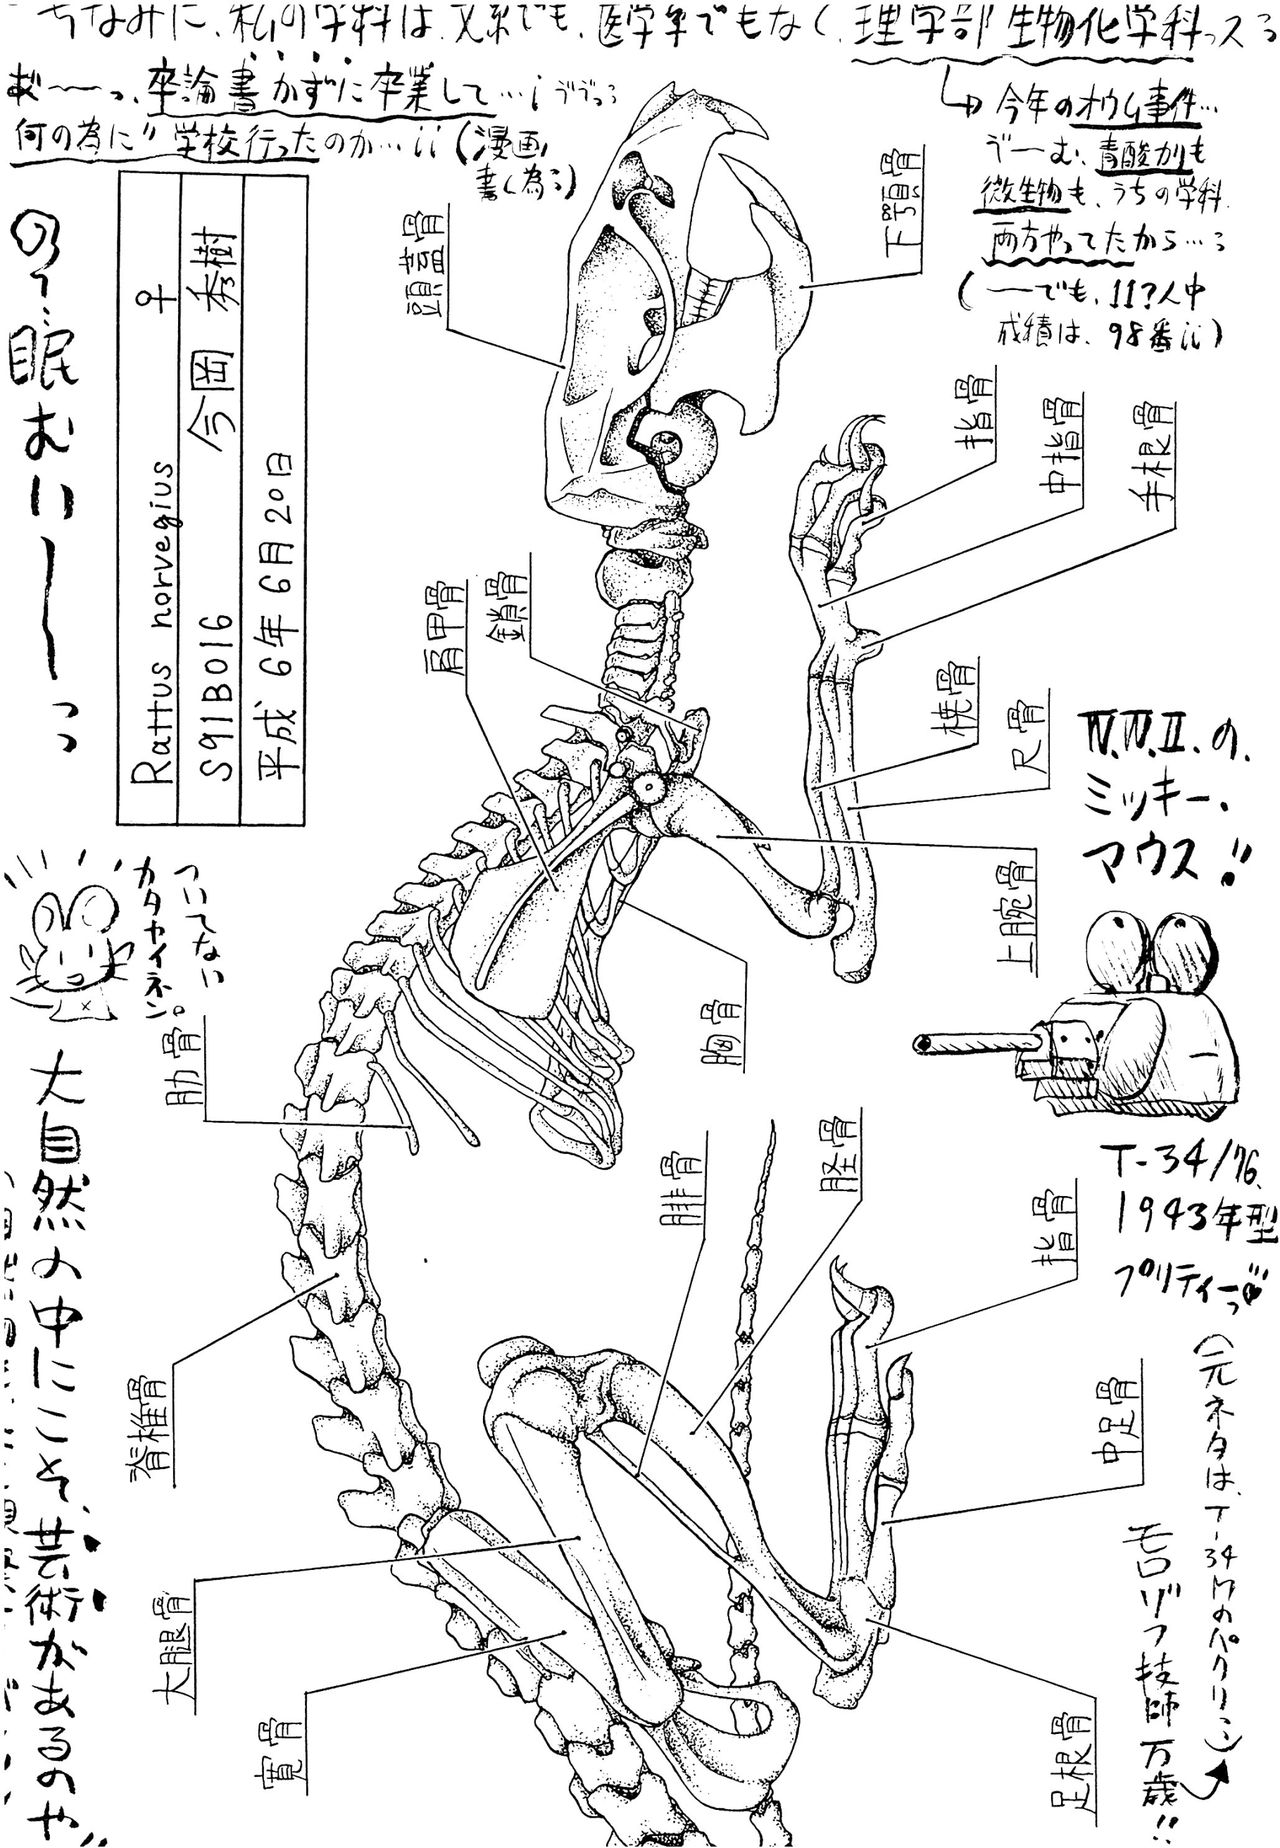 ちなみに、私の学科は、文系でも、医学系でもなく、理学部生物化学科っス:
あ゛〜〜っ、卒論書かずに卒業して…;
何の為に"学校行ったのか…;;(漫画
書く為:)
↳今年のオウム事件…
う゛ーむ、青酸カリも
微生物も、うちの学科
両方やってたから…:
(ーでも、11?人中
成績は、98番;;)
の〜…眠むいーーっっ
Rattus norvegius ♀
S91B016 今岡 秀樹
平成 6年 6月 20日
頭蓋骨
下顎骨
指骨
中指骨
手根骨
肩甲骨
鎖骨
橈骨
尺骨
上腕骨
胸骨
肋骨
腓骨
脛骨
指骨
脊椎骨
中足骨
大腿骨
寛骨
足根骨
W.W.Ⅱ.の、
ミッキー、
マウス!!
T-34/76、
1943年型
プリティーっ♥
(元ネタは、T-34Mのパクリ)
モロゾフ技師万歳!!
ついてない
カタヤイネン。
大自然の中にこそ、芸術があるのや"